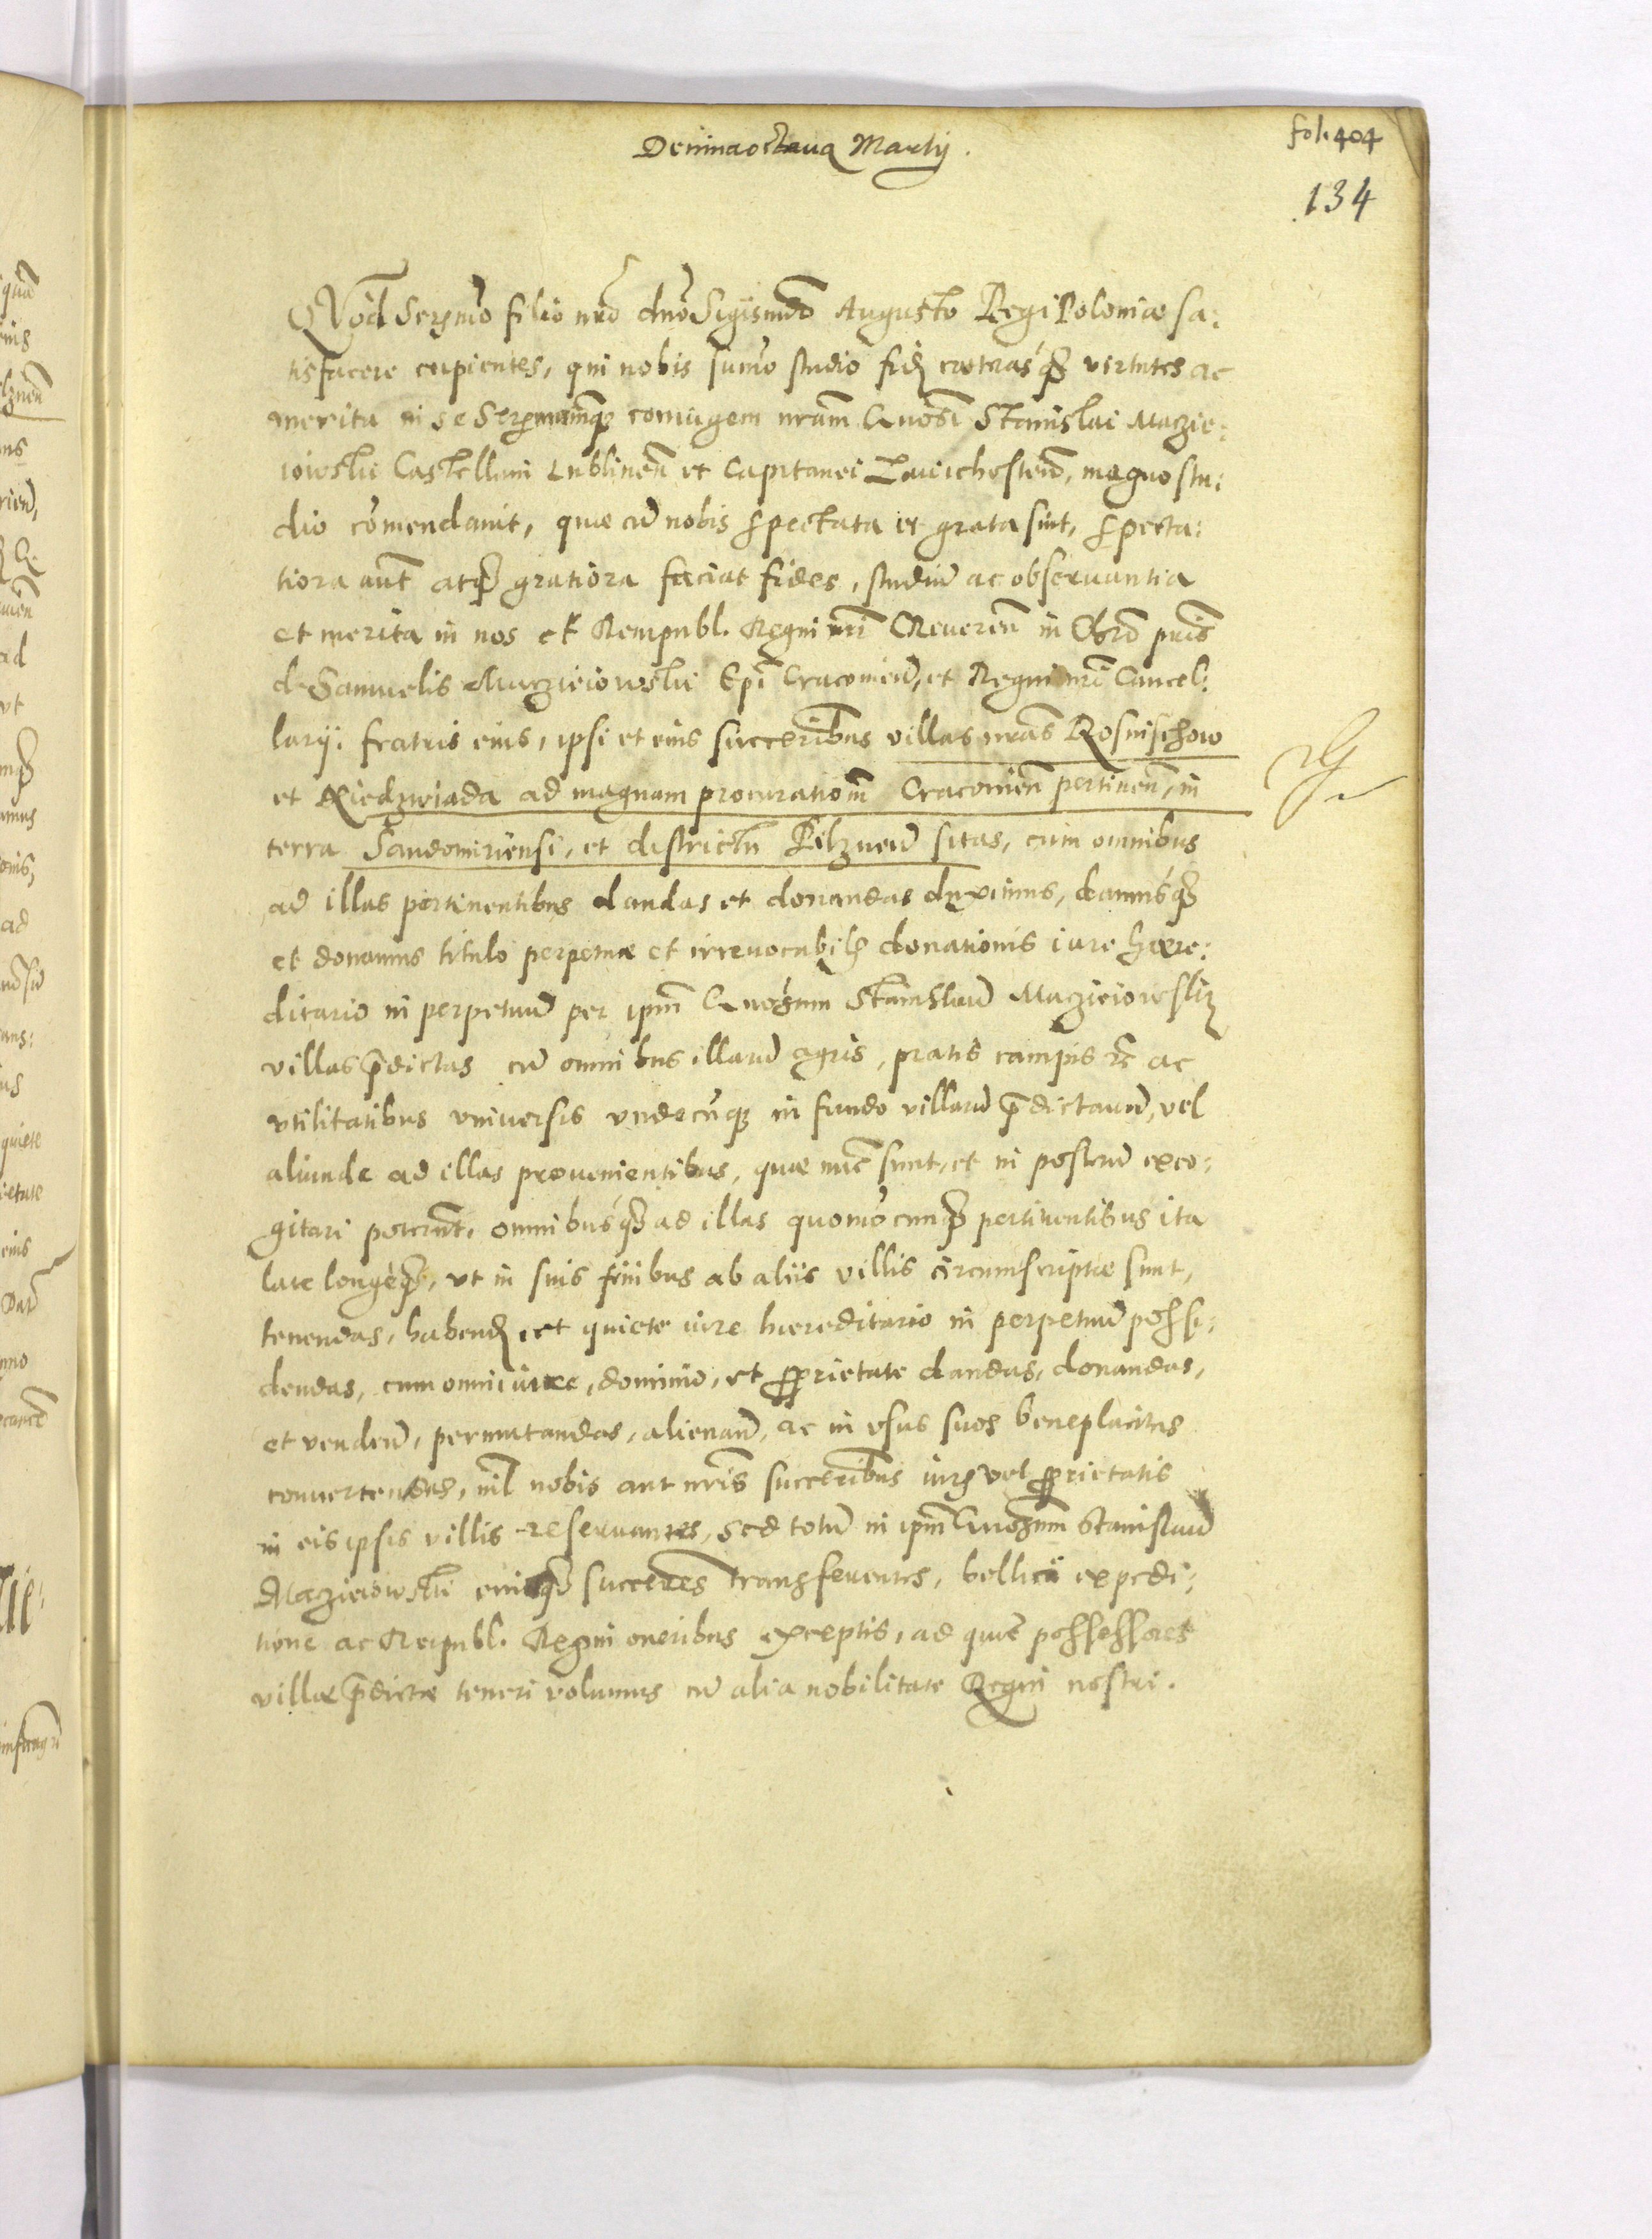 Decimaoctaua Martij.
fol. 404
134
QVod Serēmo filio nr̄o dn̄o Sigismūdo Augusto Regi Poloniæ sa:
tisfacere cupientes, qui nobis sum̄o studio fidē cæterasq̃ virtutes ac
merita in se Serēmamq̃ coniugem nr̄am Gn̄osi Stanislai Maczie:
iowski Castellani Lublineñ et Capitanei Zawichosteñ, magno stu:
dio com̄endauit, quæ cū nobis spectata et grata sint, specta:
tiora aūt atq̃ gratiora faciat fides, studiū ac obseruantia
et merita in nos et Rempubl. Regni nr̄i Reuereñ in Chr̄o pr̄is
d. Samuelis Macziejowski Ep̄i Cracouieñ, et Regni nr̄i Cancel:
larij: fratris eius, ipsi et eius succeribus villas nr̄as Rosnischow
et Niedzwiada ad magnam procurationem̄ Cracouieñ pertineñ, in
terra Sandomiriensi, et districtu Pilzneñ sitas, cum omnibus
ad illas pertinentibus dandas et donandas duximus, damusq̃
et donamus titulo perpetuæ et irreuocabilis donationis iure hære:
ditario in perpetuū per ipm̄ Gn̄osum Stanislaū Macziejowski
villas p̄dictas cū omnibus illarū agris, pratis campis &c ac
vtilitatibus vniuersis vndecūq̃ in fundo villarū p̄dictarū, vel
aliunde ad illas prouenientibus, quæ nūc sunt, et in posterū exco:
gitari poterūt, omnibusq̃ ad illas quomōcunq̃ pertinentibus ita
late longeq̃, vt in suis finibus ab aliis villis circumscriptæ sunt,
tenendas, habend. et quiete iure hæreditario in perpetuū possi:
dendas, cum omni iure, dominio, et p̄prietate dandas, donandas,
et vendeñ, permutandas, alienañ, ac in vsus suos beneplacitos
conuertendas, nil nobis aut nr̄is succeribus iuris vel p̄prietatis
in eis ipsis villis reseruantes, sed totū in ipm̄ Gn̄osum Stanislaū
Maczieiowski eiusq̃ succeres transferentes, bellica expedi:
tione ac Reipubl. Regni oneribus exceptis, ad quæ possessores
villæ p̄dictæ teneri volumus cū alia nobilitate Regni nostri.